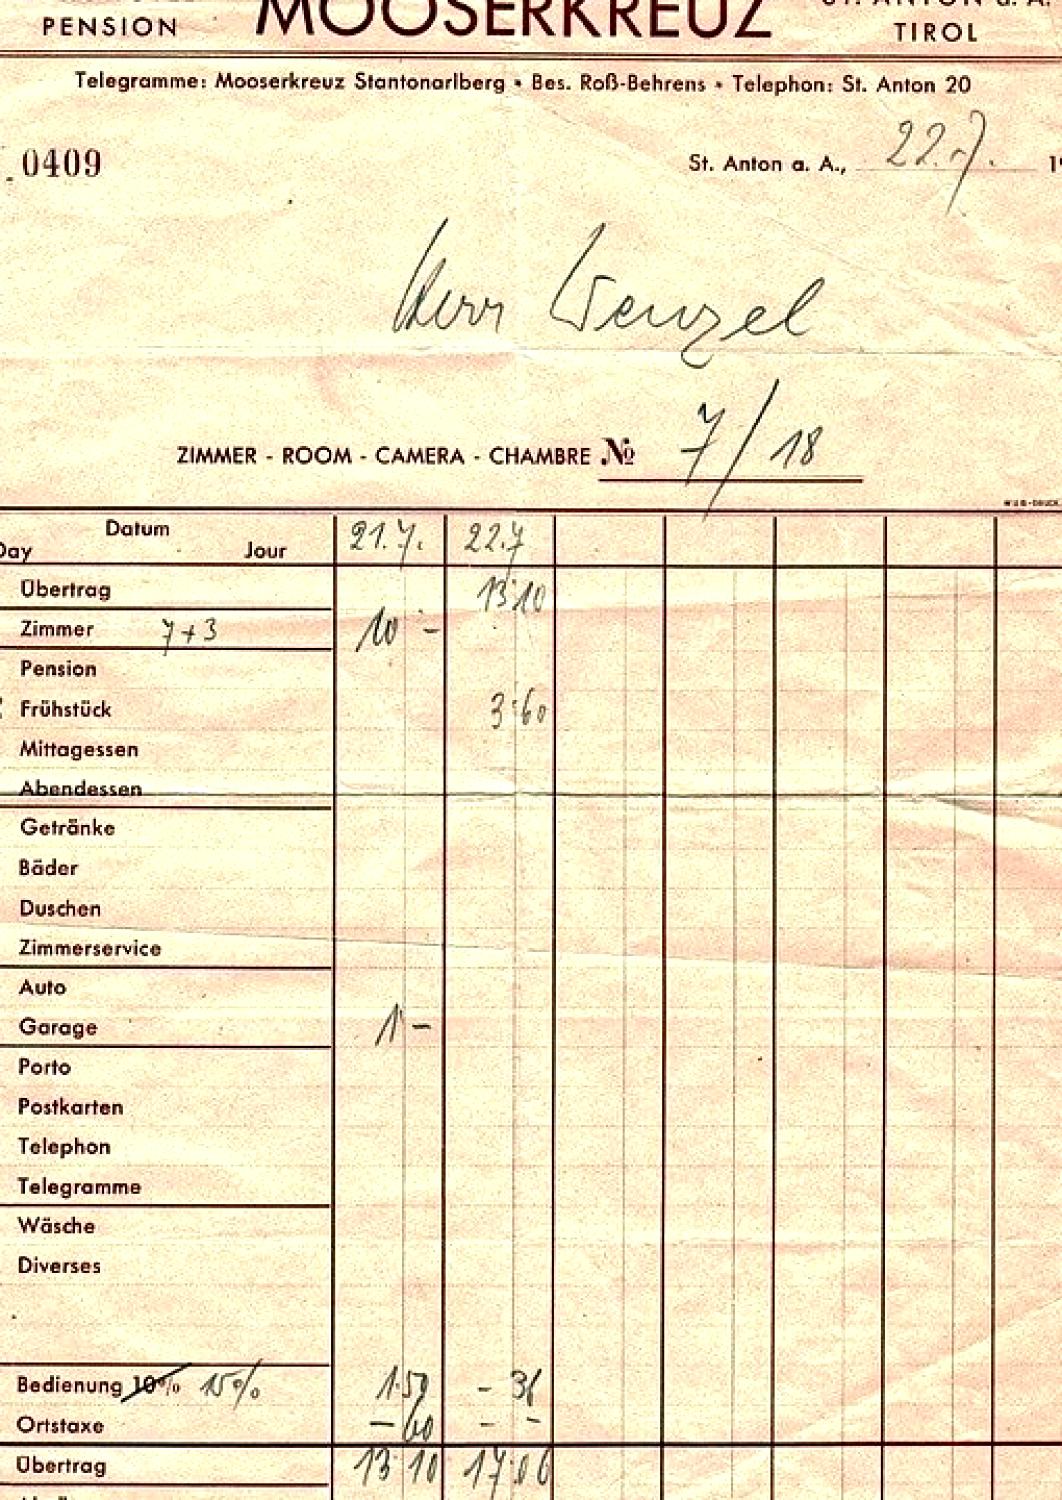 PENSION MOOSERKREUZ ST. ANTON a. A.
TIROL
Telegramme: Mooserkreuz Stantonarlberg • Bes. Roß-Behrens • Telephon: St. Anton 20
0409 St. Anton a. A., 22.7. 19
Herr Wenzel
ZIMMER - ROOM - CAMERA - CHAMBRE № 7/18
Datum
Day Jour 21.7. 22.7
Übertrag 13 10
Zimmer 7+3 10 -
Pension
Frühstück 3 60
Mittagessen
Abendessen
Getränke
Bäder
Duschen
Zimmerservice
Auto
Garage 1 -
Porto
Postkarten
Telephon
Telegramme
Wäsche
Diverses
Bedienung 10% 15% 1.50 - 36
Ortstaxe - 60 - -
Übertrag 13 10 17 06